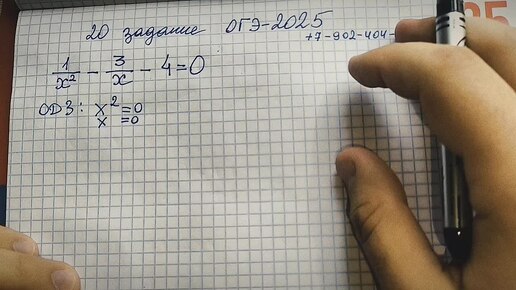 20 задание ОГЭ-2025
+7-902-404-
1/x² - 3/x - 4=0
ОДЗ: x²=0
x =0